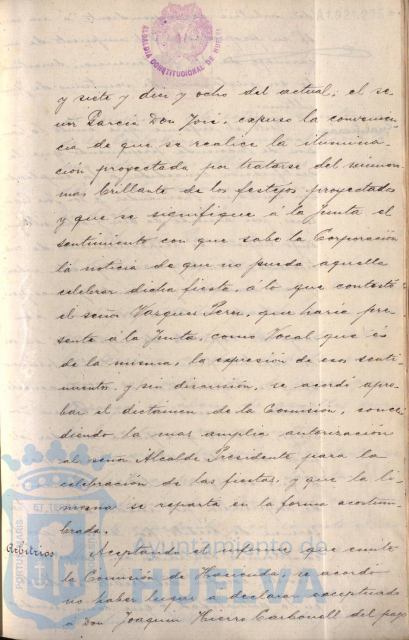 ALCALDIA CONSTITUCIONAL DE HUELVA
y siete y diez y ocho del actual; el se-
ñor García Don José, expuso la convenien-
cia de que se realice la ilumina-
ción proyectada por tratarse del número
mas brillante de los festejos proyectados
y que se signifique á la Junta el
sentimiento con que sabe la Corporación
la noticia de que no pueda aquella
celebrar dicha fiesta, á lo que contestó
el señor Vazquez Perez, que haria pre-
sente á la Junta, como Vocal que es
de la misma, la expresión de esos senti-
mientos, y sin discusión, se acordó apro-
bar el dictamen de la Comisión, conce-
diendo la mas amplia autorización
al señor Alcalde Presidente para la
celebración de las fiestas y que la li-
mosna se reparta en la forma acostum-
brada.
Arbitrios Aceptando el informe que emite
la Comisión de Hacienda se acordó
no haber lugar a declarar exceptuado
á Don Joaquin Hierro Carbonell del pago
Ayuntamiento de
HUELVA
PORTUS MARIS ET TE